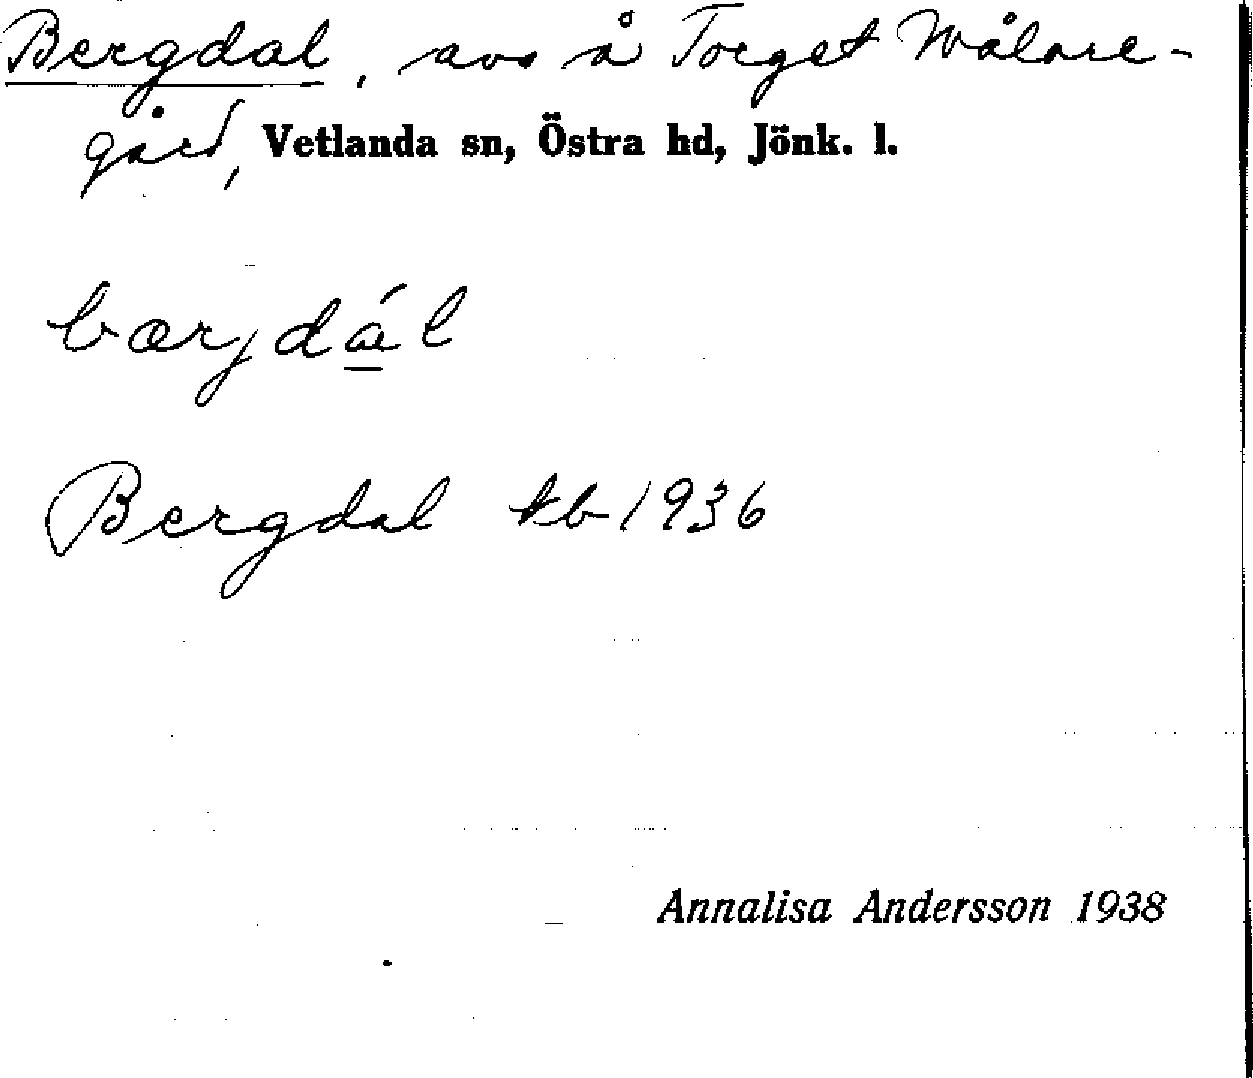 Bergdal, avs å Torget Målare-
gård, Vetlanda sn, Östra hd, Jönk. l.
bærjdál
Bergdal kb 1936
Annalisa Andersson 1938